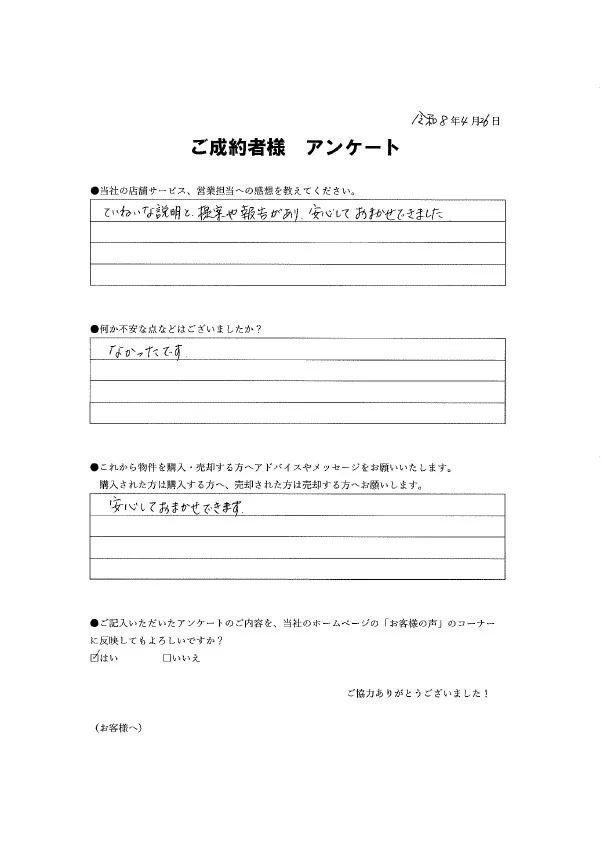 令和8年4月26日
ご成約者様　アンケート
●当社の店舗サービス、営業担当への感想を教えてください。
ていねいな説明と、提案や報告があり、安心しておまかせできました
●何か不安な点などはございましたか？
なかったです。
●これから物件を購入・売却する方へアドバイスやメッセージをお願いいたします。
購入された方は購入する方へ、売却された方は売却する方へお願いします。
安心しておまかせできます。
●ご記入いただいたアンケートのご内容を、当社のホームページの「お客様の声」のコーナー
に反映してもよろしいですか？
☑はい　□いいえ
ご協力ありがとうございました！
（お客様へ）